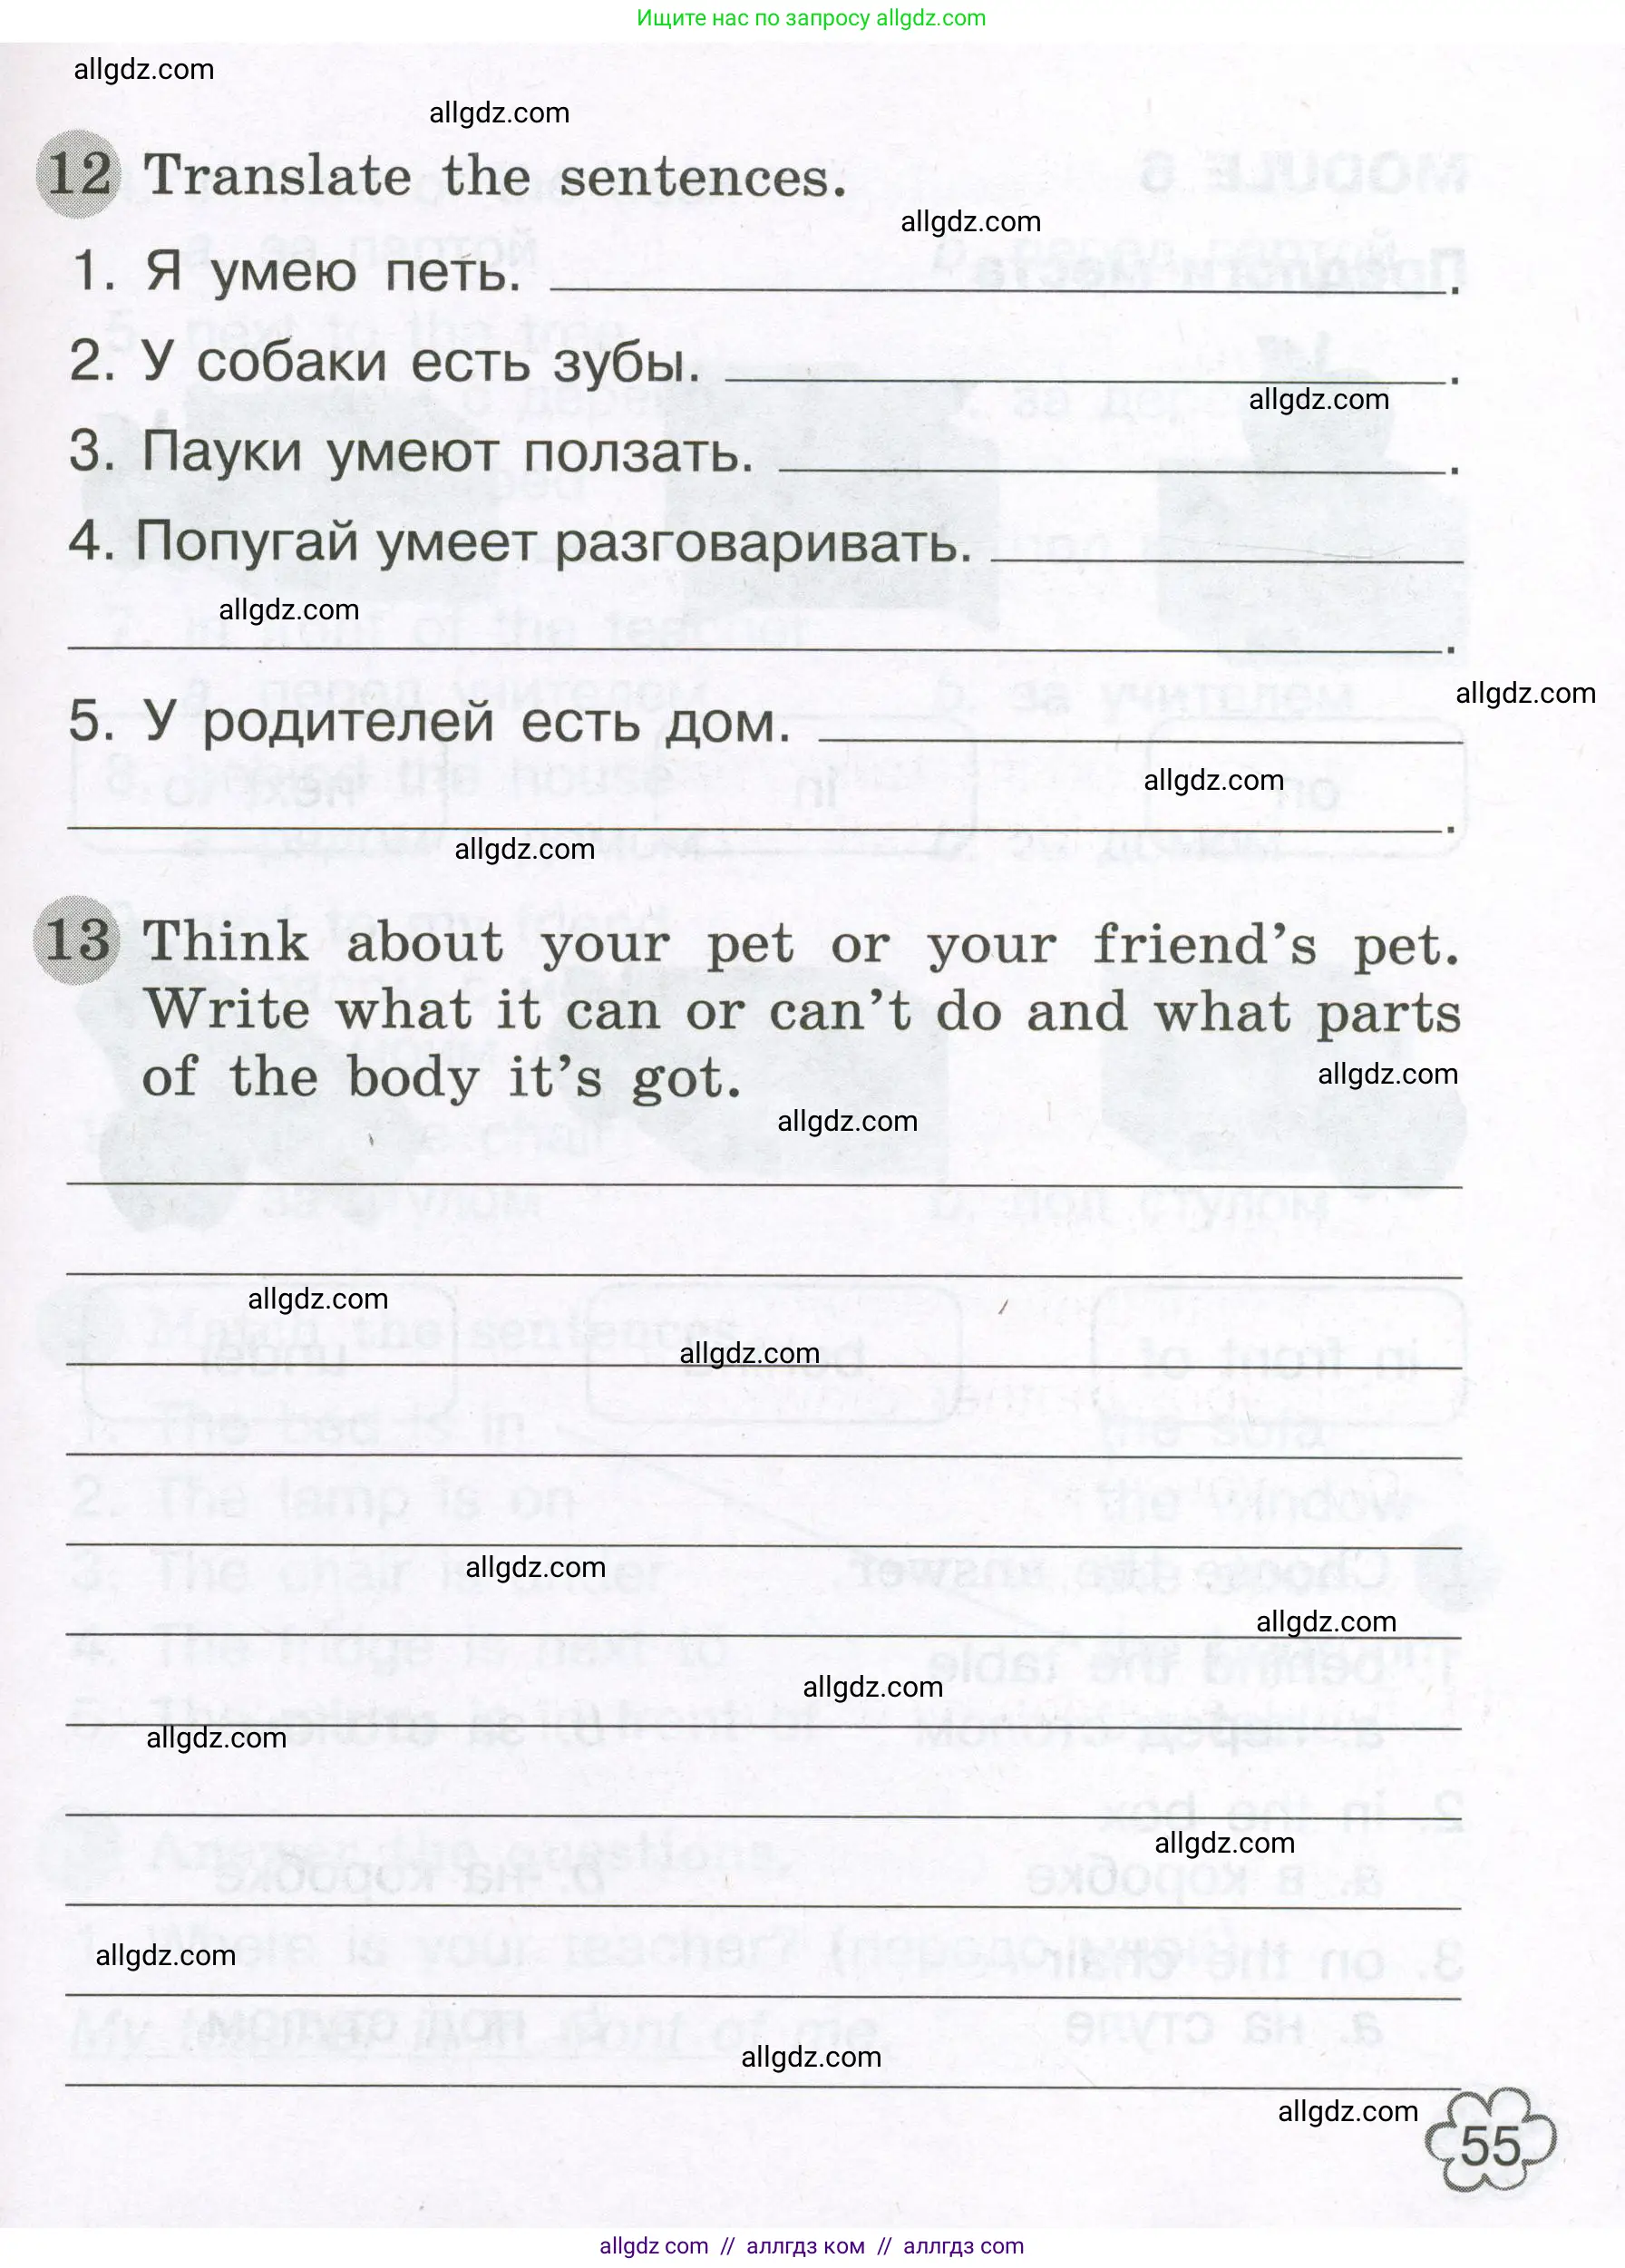 Ищите нас по запросу allgdz.com
allgdz.com
allgdz.com
12 Translate the sentences.
allgdz.com
1. Я умею петь. .
2. У собаки есть зубы. .
allgdz.com
3. Пауки умеют ползать. .
4. Попугай умеет разговаривать.
allgdz.com
.
allgdz.com
5. У родителей есть дом.
allgdz.com
.
allgdz.com
13 Think about your pet or your friend's pet.
Write what it can or can't do and what parts
of the body it's got.
allgdz.com
allgdz.com
allgdz.com
allgdz.com
allgdz.com
allgdz.com
allgdz.com
allgdz.com
allgdz.com
allgdz.com
allgdz.com
allgdz.com
55
allgdz com // аллгдз ком // аллгдз com